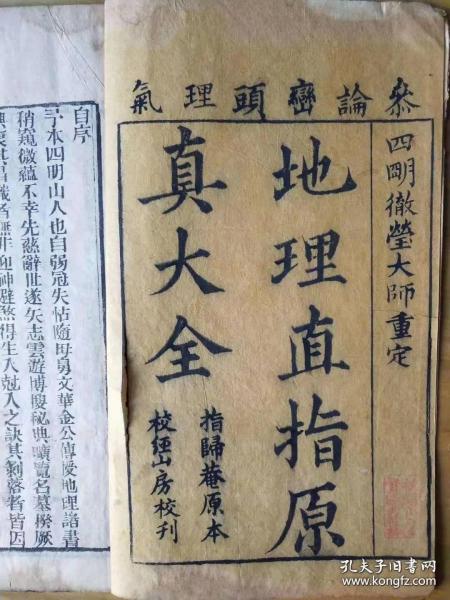 參論巒頭理氣
四明徹瑩大師重定
地理直指原
真大全
指歸菴原本
校經山房校刊
自序
予本四明山人也自弱冠失怙隨母舅文華金公傳授地理諸書
稍窺微蘊不幸先慈辭世遂矢志雲遊博覽秘典囑覽名墓
無非迎神避煞得生人剋人之訣其剝落者皆因
孔夫子旧书网
www.kongfz.com